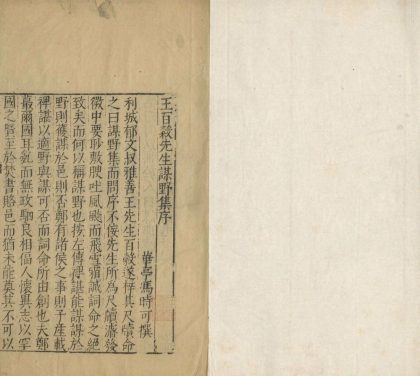 王百穀先生謀野集序
華亭馮時可撰
利城郁文叔雅善王先生百穀遂梓其尺牘命
之曰謀野集而問序不佞先生所為尺牘濤後
徵中要眇敷腴吐風颷而飛雪霜誠詞命之絕
致矣而何以稱謀野也按左傳裨諶能謀謀於
野則獲謀於邑則否鄭有諸侯之事則子產載
裨諶以適野與謀可否而詞命所由創也夫鄭
蕞爾國耳氣而無攻駟良相偪人懷異志以罕
國之暋至於焚書賂邑而猶未能奠其不可以